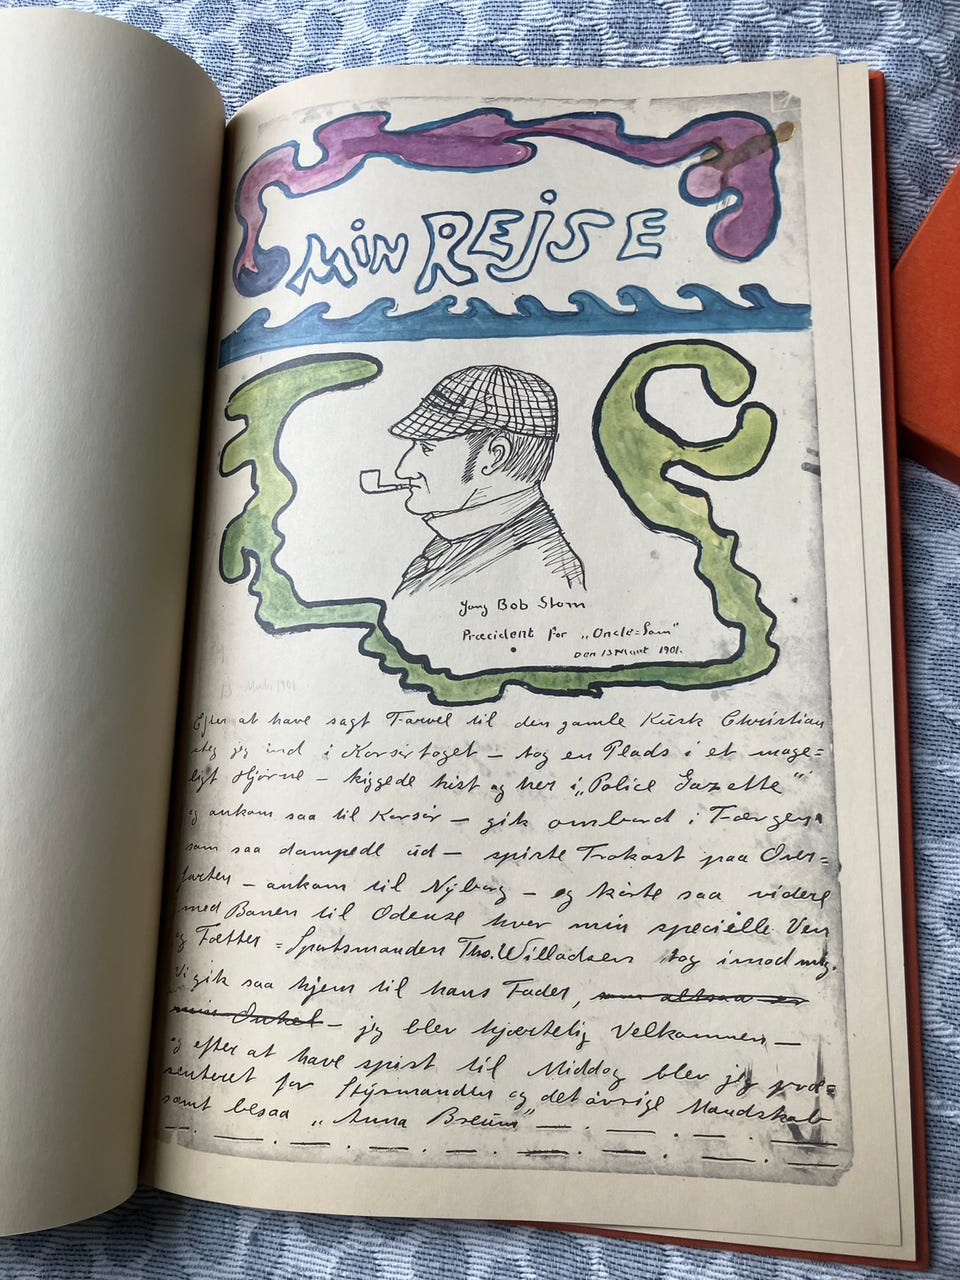 MIN REJSE
Yong Bob Storn
Præcident for „Oncle=Sam"
Den 13 Mart 1901.
13 Marts 1901
Efter at have sagt Farvel til den gamle Kusk Christian
steg jeg ind i Korsörtoget – tog en Plads i et mage=
ligt Hjörne – kiggede hist og her i „Police Gazette"
og ankom saa til Korsör – gik ombord i Færgen
som saa dampede ud – spiste Frokost paa Over=
farten – ankom til Nyborg – og körte saa videre
med Banen til Odense hvor min specielle Ven
og Fætter = Sportsmanden Tho. Willadsen tog imod mig.
Vi gik saa hjem til hans Fader, som altsaa er
min Onkel – jeg blev hjærtelig Velkommen –
og efter at have spist til Middag blev jeg præ=
senteret for Styrmanden og det övrige Mandskab
samt besaa „Anna Breum"